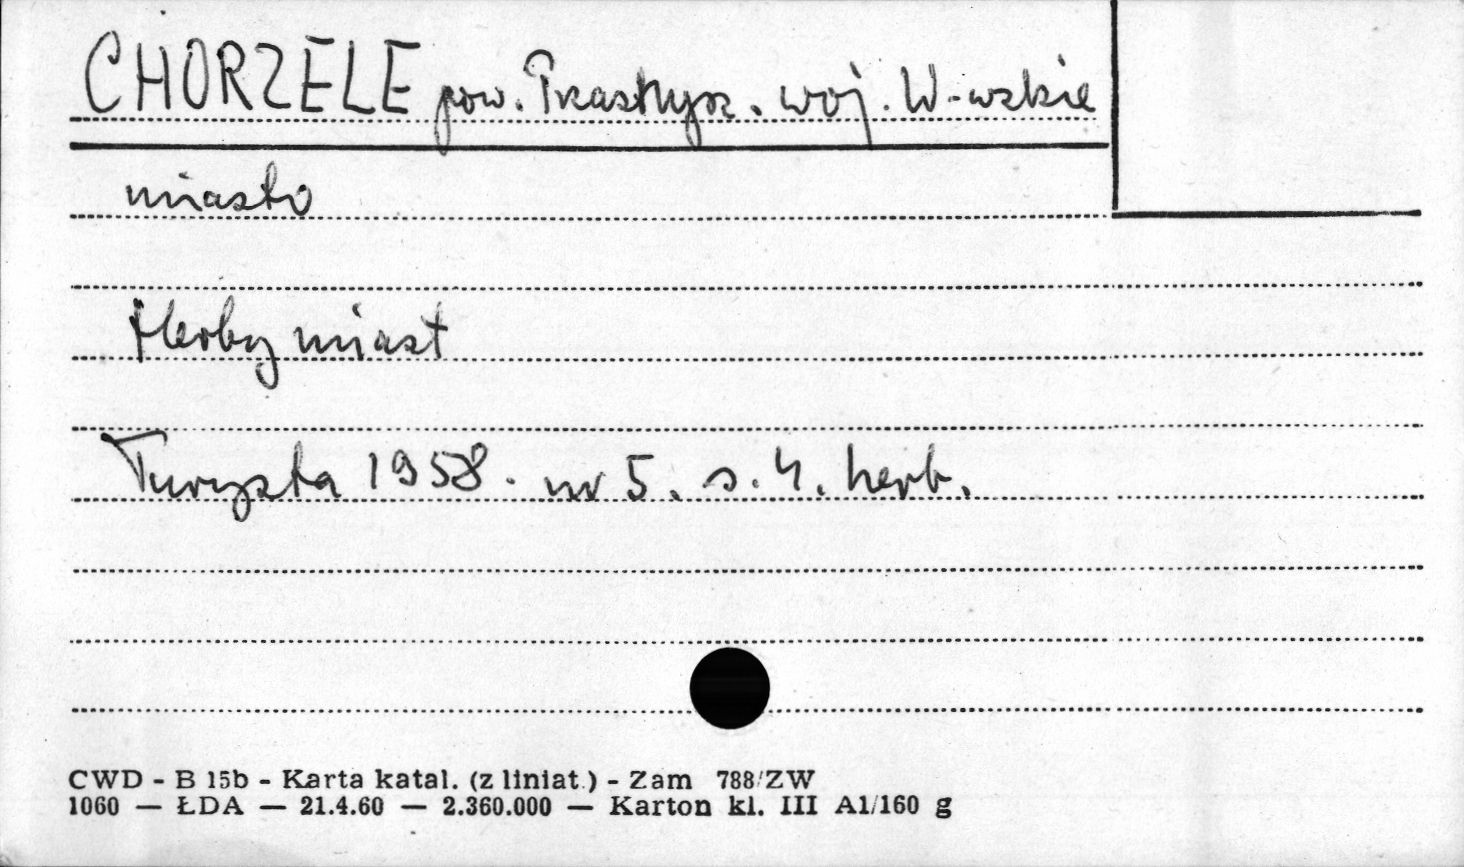 CHORZELE pow. Przasnysz. woj. W-wskie
miasto
Herby miast
Turysta 1958. nr 5. s. 4. herb.
CWD - B 15b - Karta katal. (z liniat.) - Zam 788/ZW
1060 — ŁDA — 21.4.60 — 2.360.000 — Karton kl. III A1/160 g